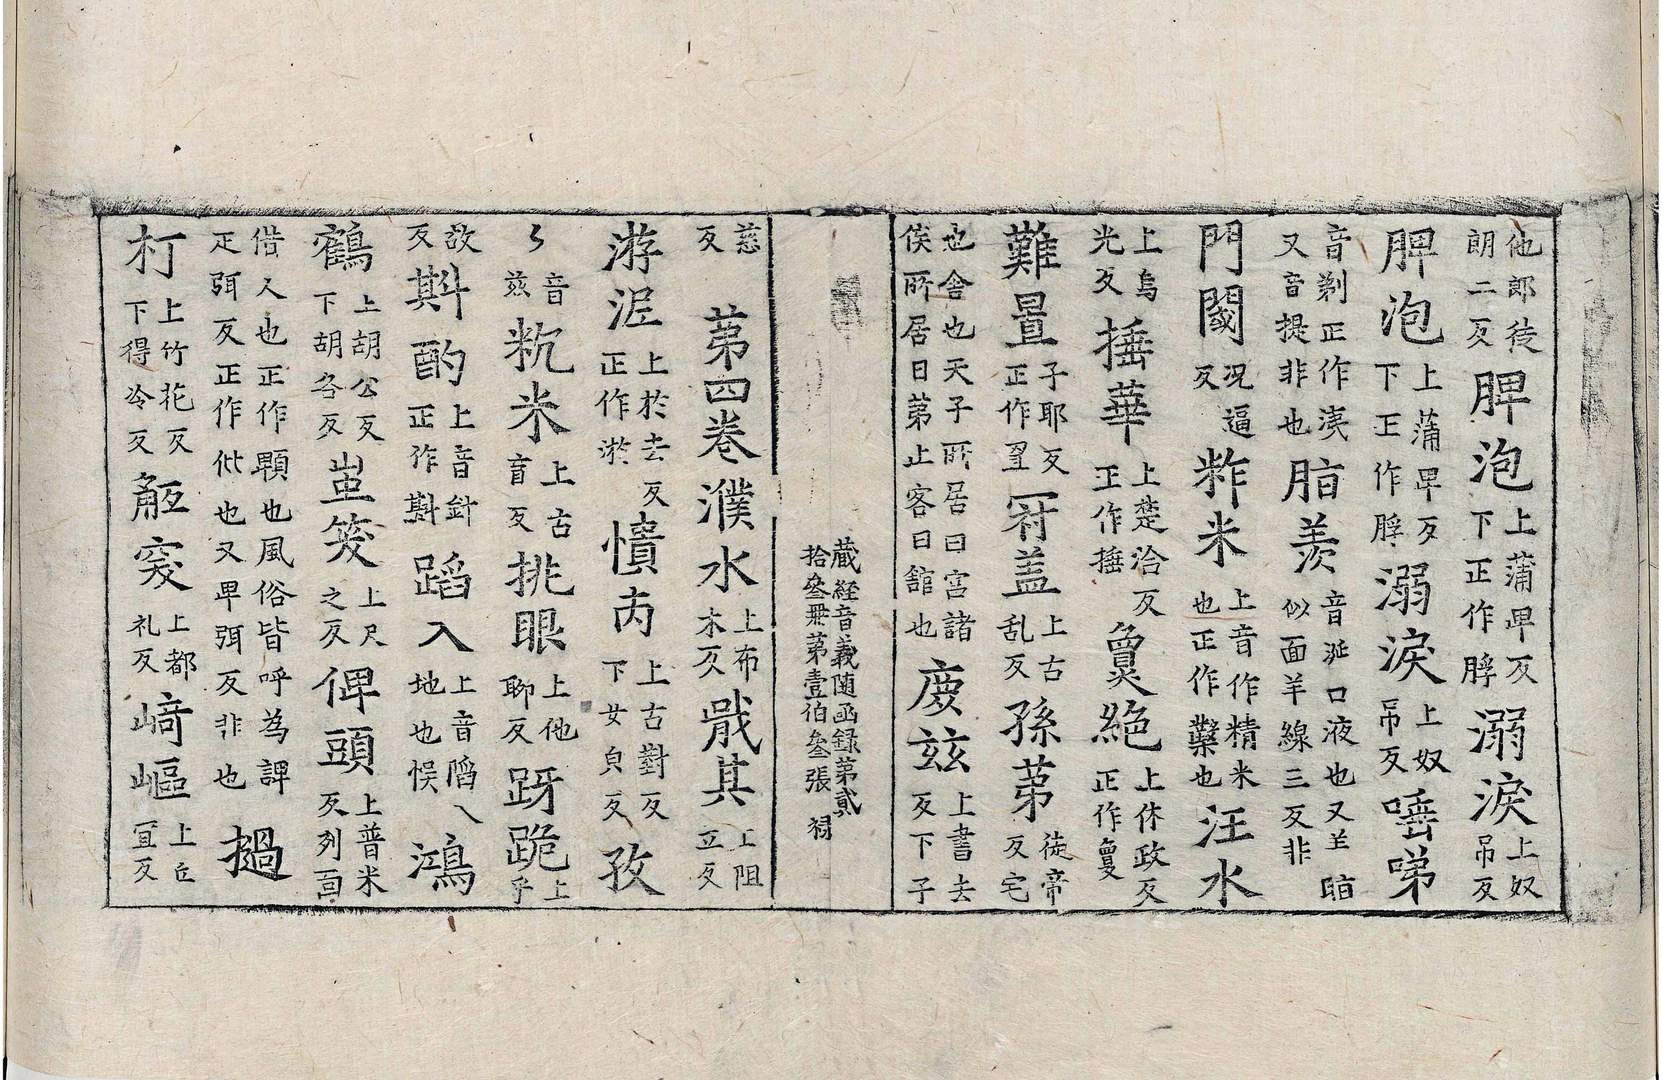 他郎徒朗二反脾泡上蒲卑反下正作脬溺淚上奴吊反
脾泡上蒲卑反下正作脬溺淚上奴吊反唾唏
音剃正作洟又音提非也脂羡音涎口液也又羊脂似面羊線三反非
門閾况逼反粰米上音作精米也正作糳也汪水
上烏光反捶華上楚洽反正作插敻絕上休政反正作敻
難曐子耶反正作罝冠盖上古乱反孫苐徒帝反宅
也舍也天子所居曰宮諸侯所居曰苐止客曰舘也慶玆上書去反下子
藏経音義随函録苐貳拾叄冊苐壹伯叄張
慈反 苐四卷濮水上布木反戢其上阻立反
游泥上於去反正作淤憒丙上古對反下女皃反孜
ㄣ音玆籸米上古盲反挑眼上他聊反跒跪上乎
故反斟酌上音針正作斟蹈入上音陷入地也悞鴻
鶴上胡公反下胡各反蚩笑上尺之反俾頭上普米反列
借人也正作顆也風俗皆呼為諀疋弭反正作仳也又卑弭反非也撾
打上竹花反下得冷反觝突上都礼反崎嶇上丘宜反